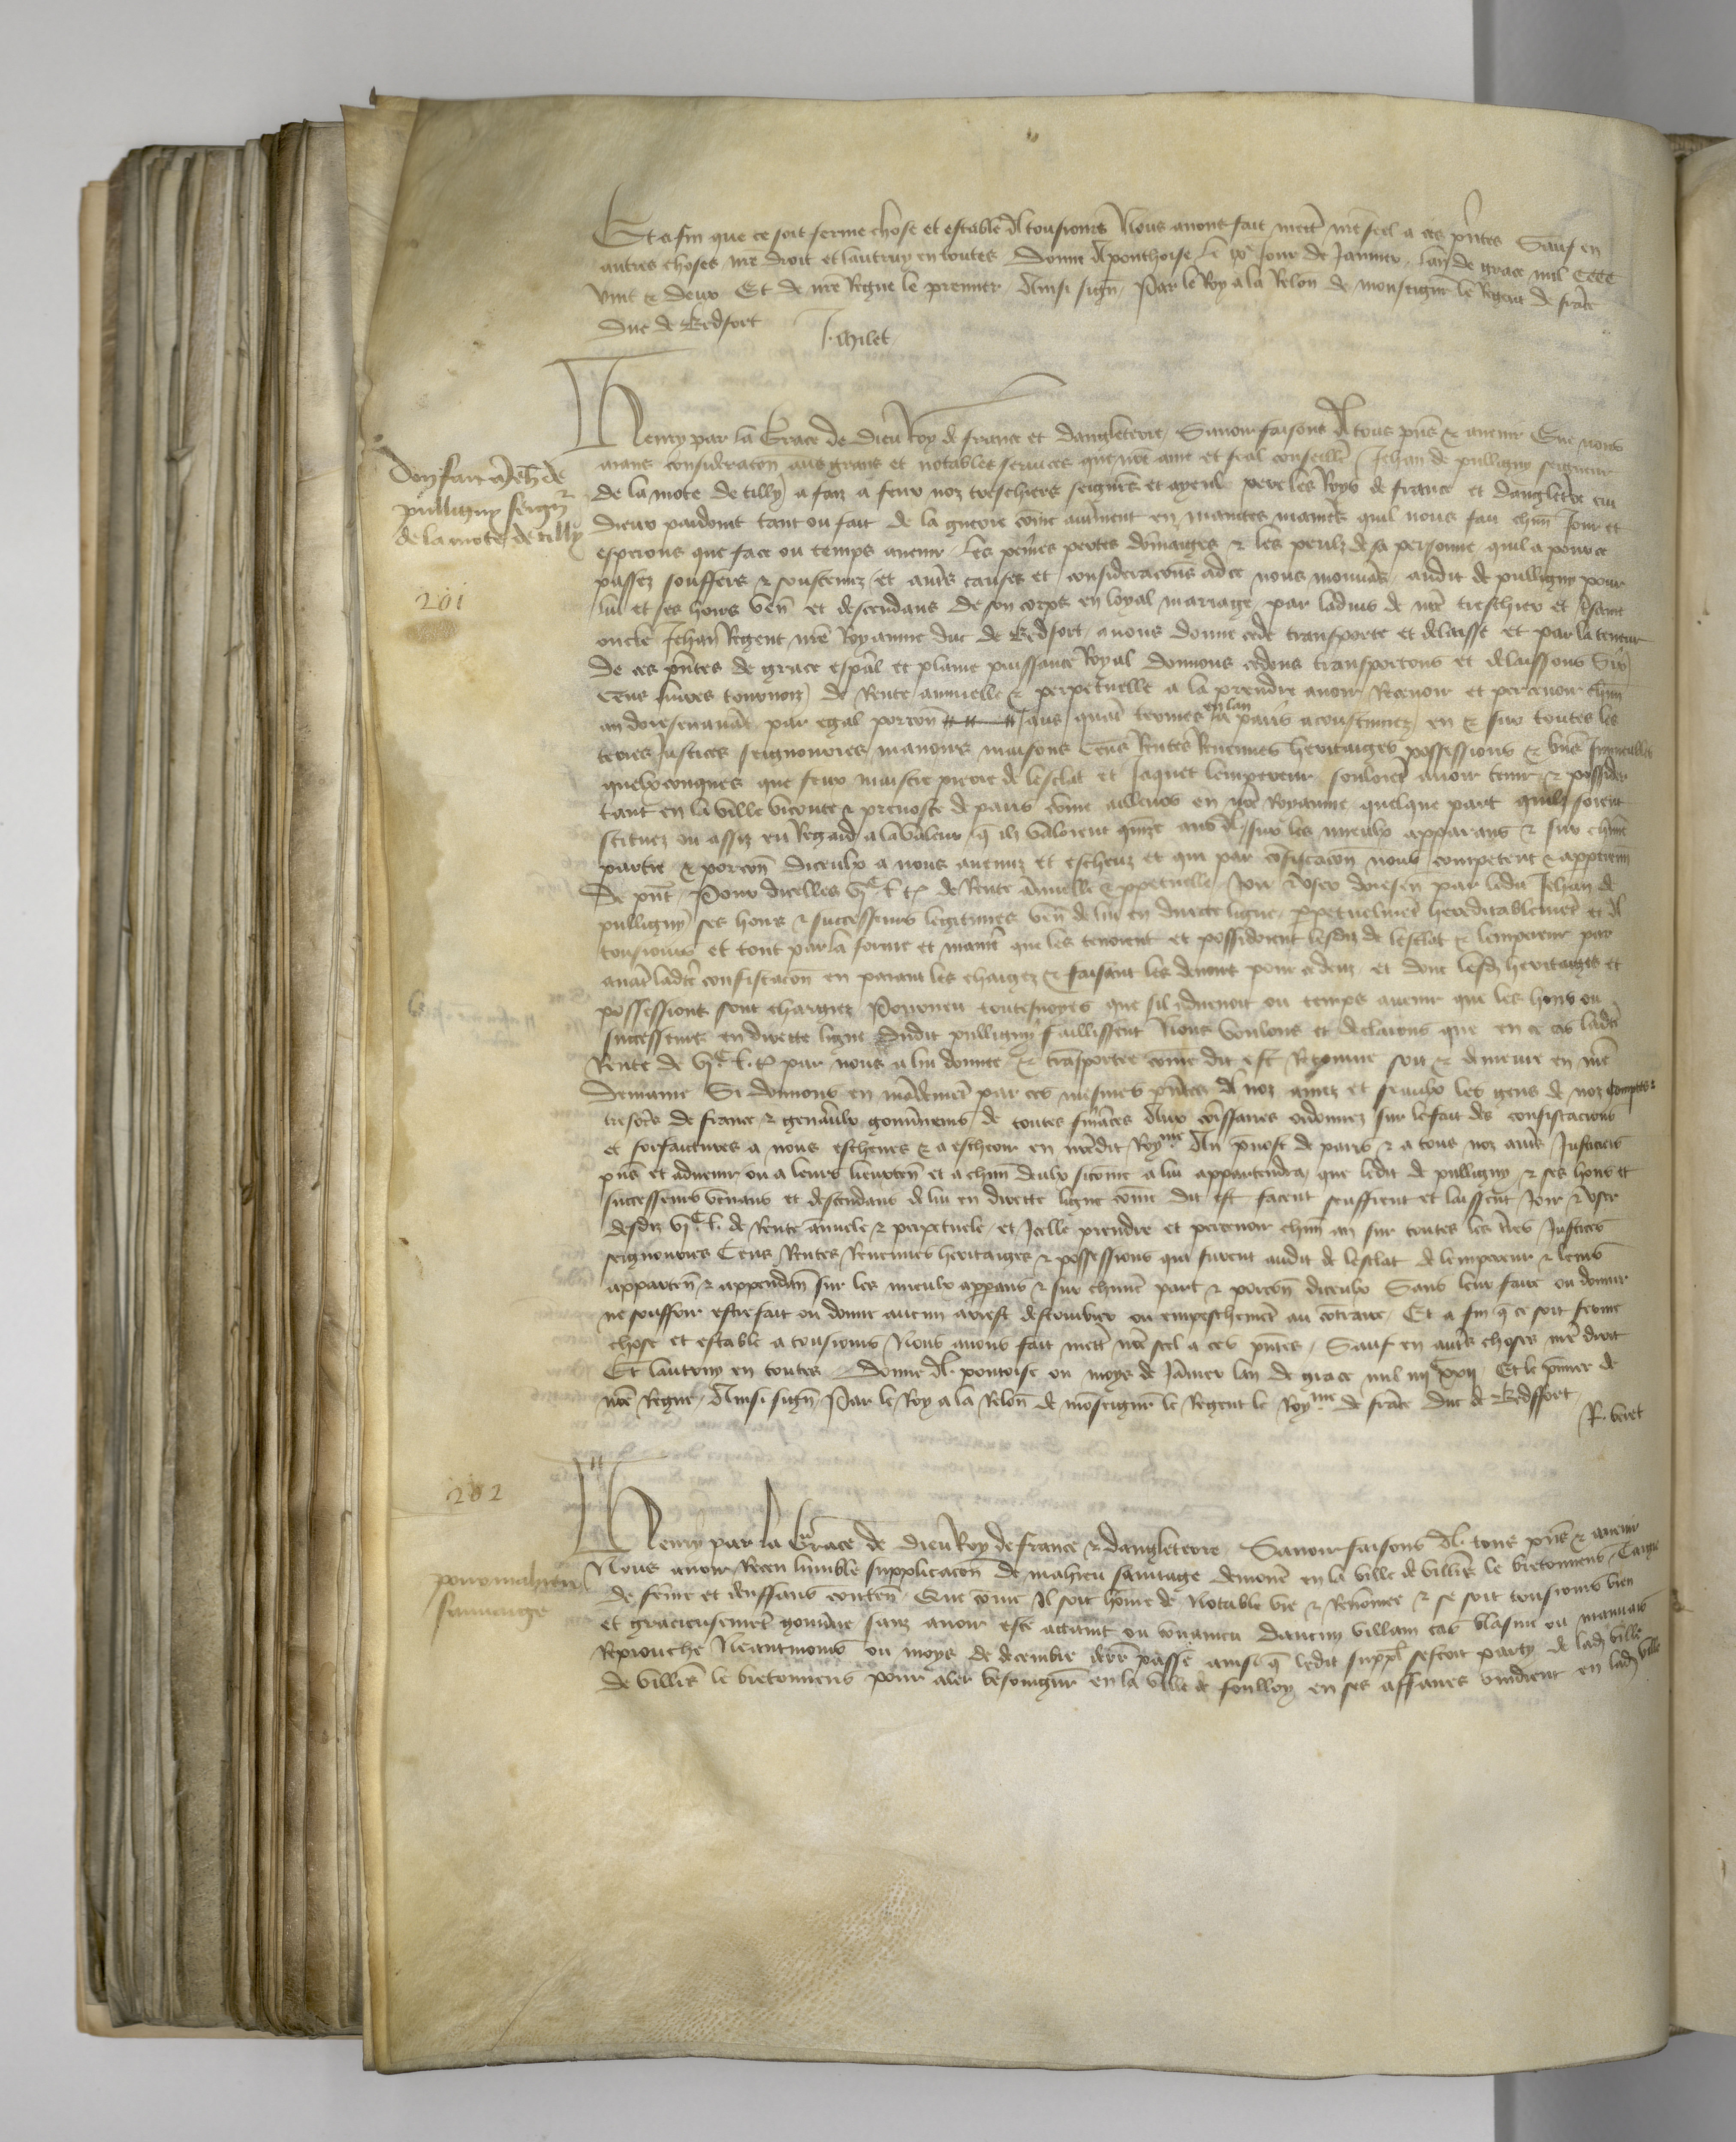 Et afin que ce soit ferme chose et estable A tousiours Nous auons fait mectre nre seel a ces pntes Sauf en
autres choses nre droit et lautruy en toutes Donne A ponthoise le Jour de Januier lan de grace mil CCCC
vint & deux Et de nre Regne le premier Ainsi signe Par le Roy a la Relon de monseigneur le Regent de france
duc de Bedfort J. Milet
Henry par la Grace de Dieu Roy de france et dangleterre Sauoir faisons A tous pns & auenir Que nous
aians consideracon aus grans et notables seruices que nre ame et feal conseiller Jehan de pulligny seigneur
de la mote de tilly a faiz a feux noz treschiers seigneurs et ayeul pere les Roys de france et dangleterre cui
dieux pardoint tant ou fait de la guerre come autrement en maintes manieres quil nous fait chun Jour et
esperons que face ou temps auenir les peines pertes domaiges & les perilz de sa personne quil a pour ce
passez souffers & soustenuz et autres causes et consideracons adce nous mouuans audit de pulligny pour
lui et ses hoirs ven et descendans de son corps en loyal mariage par laduis de nre treschier et tresame
oncle Jehan Regent nre Royaume duc de Bedfort auons donne cede transporte et delaisse et par la teneur
de ces pntes de grace espal et plaine puissance Royal donnons cedons transportons et delaissons Six
Cens liures tournois de Rente annuelle & perpetuelle a la prendre auoir Receuoir et perceuoir chun
an doresenauant par egal porcon aus quatre termes en lan a paris acoustumez en & sur toutes les
terres Justices seignouries manoirs maisons Cens Rentes Reuenues heritaiges possessions & biens Immeubles
quelxconques que feux maistre pierre de lesclat et Jaquet lempereur souloient auoir tenir & posseder
tant en la ville viconte & preuoste de paris come ailleurs en nre Royaume quelque part quilz soient
scituez ou assiz en Regard a la valeur que ilz valoient quinze ans A sur les mieulx apparans & sur chune
partie & porcon diceulx a nous auenuz et escheuz et qui par confiscacon nous competent & apptienn
De pnt Pour dicelles vjc l. t. de Rente annuelle & ppetuelle Joir & vser doresen par ledit Jehan de
pulligny ses hoirs & successeurs legitimes ven de lui en directe ligne ppetuelment hereditablement et A
tousiours et tout par la forme et maniere que les tenoient et possidoient lesdiz de lesclat & lempereur par
auant ladicte confiscacon en paiant les chaiges & faisant les deuoirs pour ce deuz et dont lesd heritaiges et
possessions sont chargiez Pourueu toutesuoyes que sil aduenoit ou temps auenir que les hoirs ou
successeurs en directe ligne dudit pulligny faillissent Nous voulons et declairons que en ce cas ladte
Rente de vjc l. t. par nous a lui donnee & trasportee come dit est Retourne soit & demeure en nre
demaine Si donnons en mandement par ces mesmes pntes A noz amez et feaulx les gens de noz comptes
tresors de france & generaulx gouuerneurs de toutes finances Aux comissaires ordonnez sur le fait des confiscacions
et forfaictures a nous escheues & a escheoir en nredit Royme Au preuost de paris & a tous noz autres Justiciers
pns et aduenir ou a leurs lieuxten et a chun deulx sicome a lui appartendra que ledit de pulligny & ses hoirs et
successeurs venans et descendans de lui en directe ligne come dit est facent seuffrent et laissent Joir & vser
desdiz vjc l. de Rente annuele & perpetuele et Icelle prendre et perceuoir chun an sur toutes les tres Justices
seignouries Cens Rentes Reuenues heritaiges & possessions qui furent audit de lesclat de lempereur & leurs
apparten & appendan sur les mieulx apparans & sur chune part & porcon diceulx Sans leur faire ou donner
ne souffrir estre fait ou donne aucun arrest destourbier ou empeschement au contraire Et a fin que ce soit ferme
chose et estable a tousiours Nous auons fait mettre nre seel a ces pntes Sauf en autres choses nre droit
Et lautruy en toutes Donne A pontoise ou moys de Januier lan de grace mil iiijc xxij Et le premier de
nre Regne Ainsi signe Par le Roy a la Relon de monseigneur le Regent le Royme de france duc de Bedffort
R. veret
Henry par la Grace de Dieu Roy de france & dangleterre Sauoir faisons A tous pns & auenir
Nous auoir Receu lumble supplicacon de mahieu sauuage demour en la ville de villers le bretonneus Cargie
de feme et denffans conten Que come Il soit home de Notable vie & Renomee & se soit tousiours bien
et gracieusement gouuerne sanz auoir este attaint ou conuaincu daucun villain cas blasme ou mauuais
Reprouche Neantmoins ou moys de decembre derr passe ainsi que ledit suppl sestoit party de lad ville
de villers le bretonneus pour aler besongner en la ville de foulloy en ses affaires vindrent en lad ville
Don fait a Jeh de
pulligny seigr
de la mote de tilly
201
202
pour mahieu
sauuaige